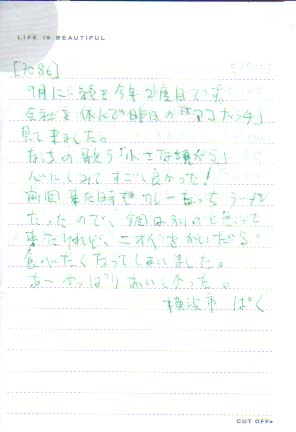 LIFE IS BEAUTIFUL
[7086]
9月に続き今年2度目です。
会社を休んで昨日の「アコナッチ」
見て来ました。
なっちの歌う「小さな頃から」
心にしみてすごく良かった!
前回来た時もカレーもっちラーメン
だったので、今回は別のと思って
来たけれど、ニオイをかいだら
食べたくなってしまいました。
あ〜やっぱりおいしかった。
横浜市 ぱく
CUT OFF▸